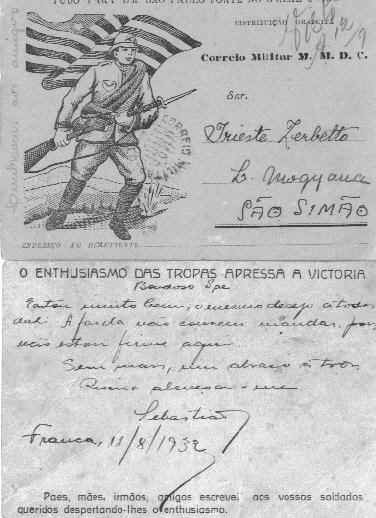 TUDO POR SÃO PAULO
DISTRIBUIÇÃO GRATUITA
Correio Militar M. M. D. C.
Snr.
Trieste Zerbetto
L. Mogyana
SÃO SIMÃO
CORREIO
ENDEREÇO DO REMETTENTE
O ENTHUSIASMO DAS TROPAS APRESSA A VICTORIA
Estou muito bem, o mesmo desejo a todos
dahi. A farda não convem mandar, por
não estou firme aqui
Sem mais, um abraço a todos
Sebastião
Franca, 11/8/1932
Paes, mães, irmãos, amigos escrevei aos vossos soldados
queridos despertando-lhes o enthusiasmo.